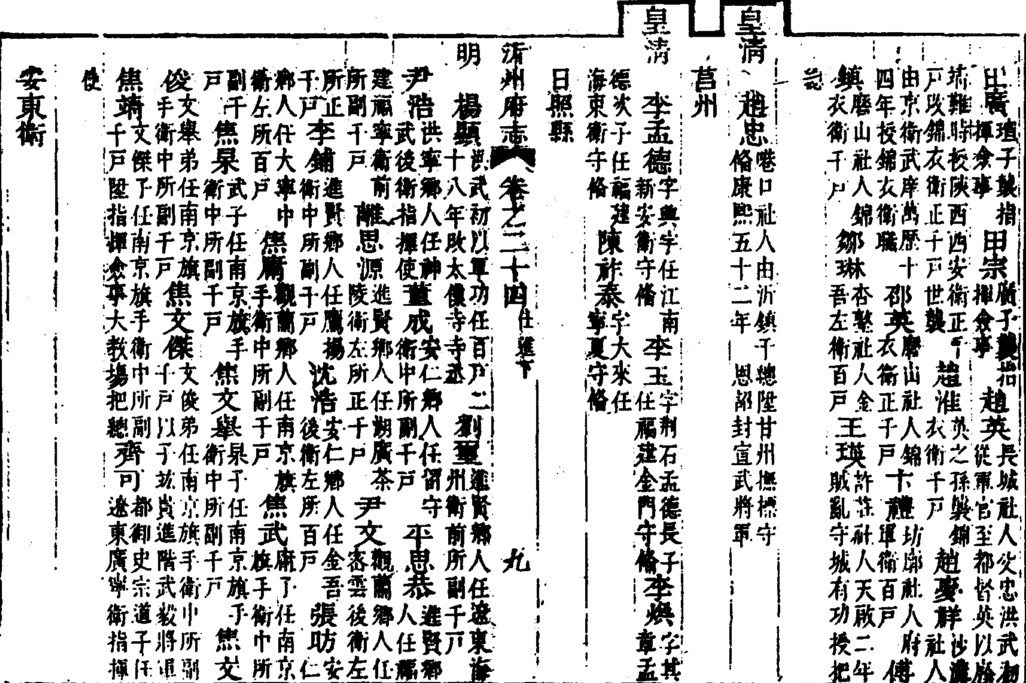 田廣 瑄子襲指揮僉事 田宗 廣子襲指揮僉事 趙英 長城社人父忠洪武初從軍官至都督英以廕
靖難時授陝西西安衛正千戶改錦衣衛正千戶世襲 趙准 英之孫襲錦衣衛千戶 趙慶祥 羊沙灘社人
由京衛武庠萬曆十四年授錦衣衛職 邵英 磨山社人錦衣衛正千戶 卞禮 坊廓社人府軍衛百戶 傅
鎮 磨山社人錦衣衛千戶 鄒琳 杏墅社人金吾左衛百戶 王瑛 許莊社人天啟二年賊亂守城有功授把
總
皇清 趙忠 巷口社人由沂鎮千總陞甘州撫標守備康熙五十二年 恩詔封宣武將軍
莒州
皇清 李孟德 字興宇任江南新安衛守備 李玉 字荊石孟德長子任福建金門守備 李煥 字其章孟
德次子任福建海東衛守備 陳祚泰 字大來任寧夏守備
日照縣
沂州府志 卷之二十四 仕進下 九
明 楊顯 洪武初以軍功任百戶二十八年改太僕寺寺丞 劉璽 進賢鄉人任遼東海州衛前所副千戶
尹浩 洪寧鄉人任神武後衛指揮使 董成 安仁鄉人任留守衛中所副千戶 平思恭 進賢鄉人任福
建福寧衛前所副千戶 思源 進賢鄉人任湖廣茶陵衛左所正千戶 尹文 觀蘭鄉人任密雲後衛左
所正千戶 李鋪 進賢鄉人任鷹揚衛中所副千戶 沈浩 安仁鄉人任金吾後衛左所百戶 張昉 安仁
鄉人任大寧中衛左所百戶 焦庸 觀蘭鄉人任南京旗手衛中所副千戶 焦武 庸子任南京旗手衛中所
副千戶 焦杲 武子任南京旗手衛中所副千戶 焦文舉 杲子任南京旗手衛中所副千戶 焦文
俊 文舉弟任南京旗手衛中所副千戶 焦文傑 文俊弟任南京旗手衛中所副千戶以子玹貴進階武毅將軍
焦靖 文傑子任南京旗手衛中所副千戶陞指揮僉事大教場把總 齊可 都御史宗道子任遼東廣寧衛指揮
使
安東衛